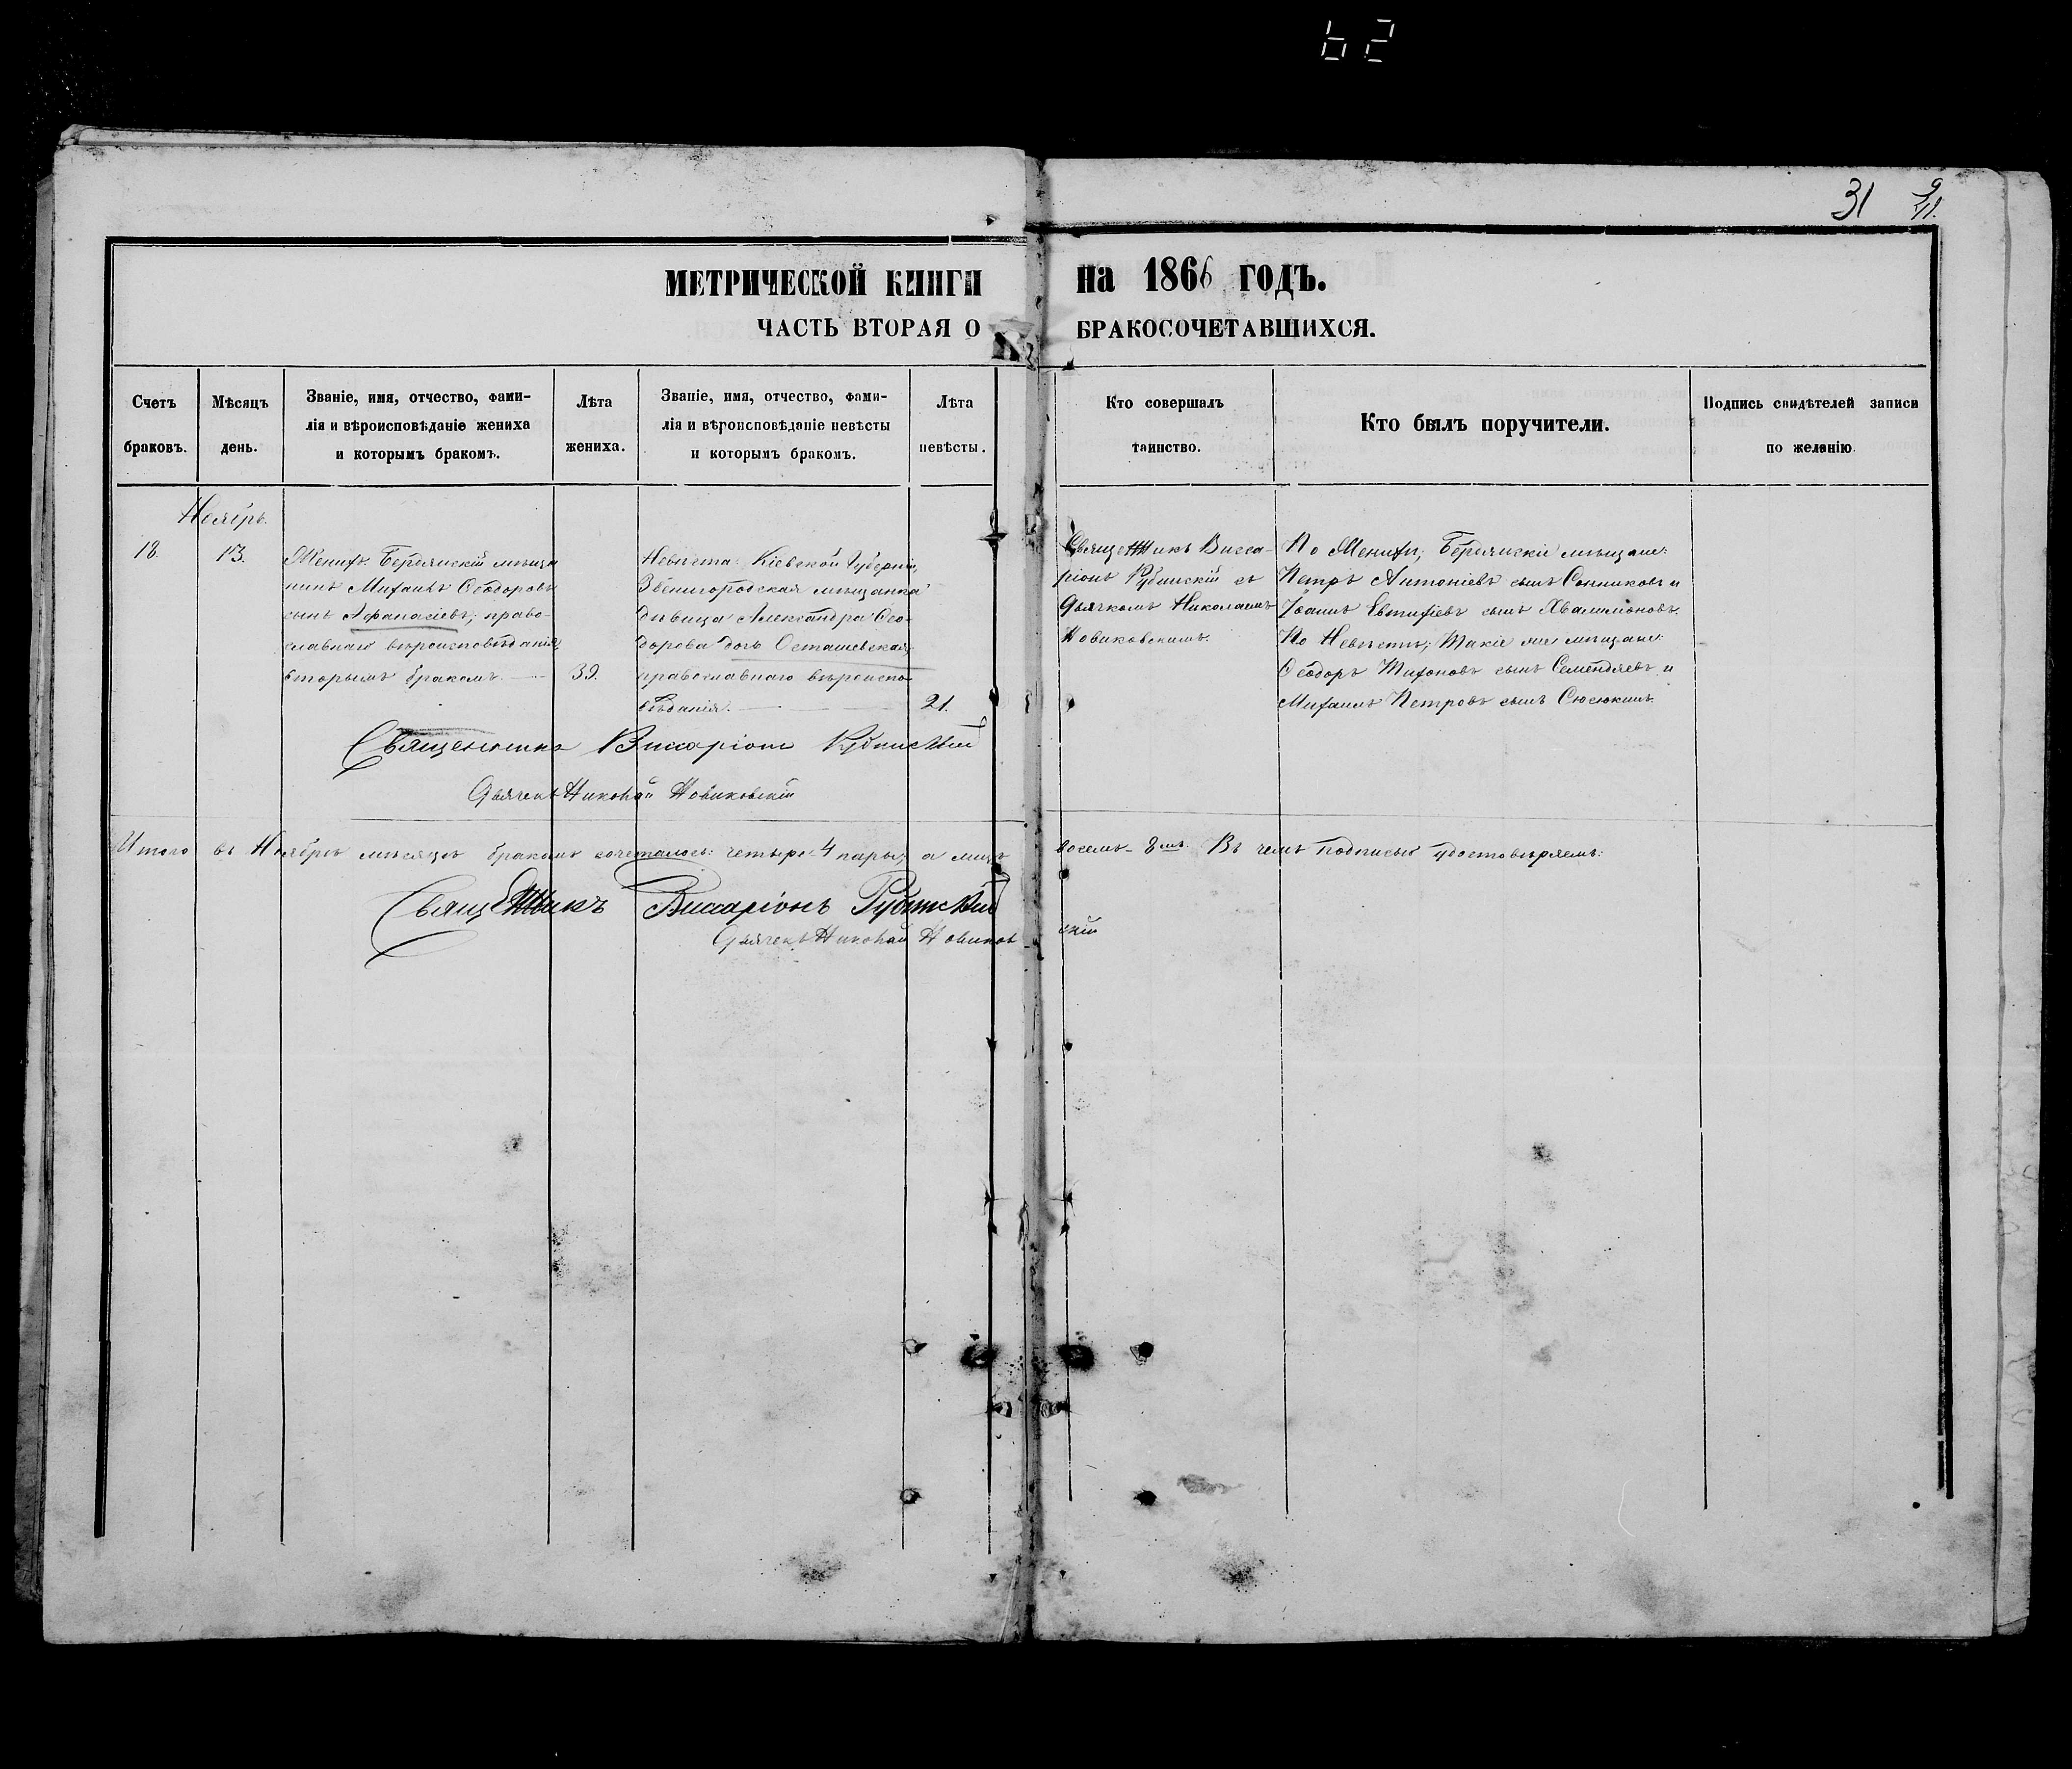 62
31
МЕТРИЧЕСКОЙ КНИГИ на 1866 ГОДЪ.
ЧАСТЬ ВТОРАЯ О БРАКОСОЧЕТАВШИХСЯ.
Счетъ браковъ.
Мѣсяцъ день.
Званіе, имя, отчество, фами-
лія и вѣроисповѣданіе жениха
и которымъ бракомъ.
Лѣта жениха.
Званіе, имя, отчество, фами-
лія и вѣроисповѣданіе невѣсты
и которымъ бракомъ.
Лѣта невѣсты.
Кто совершалъ
таинство.
Кто былъ поручители.
Подпись свидѣтелей записи
по желанію.
Ноябрь.
18.
13.
Женихъ. Бердянскій мѣща
нинъ Михаилъ Ѳеодоровъ
сынъ Аѳанасіевъ; право-
славнаго вѣроисповѣданія,
вторымъ бракомъ.
39.
Невѣста Кіевской Губерніи,
Звенигородская мѣщанка
дѣвица Александра Ѳео-
дорова дочь Осташевская
православнаго вѣроиспо-
вѣданія.
21.
Священникъ Висса-
ріонъ Рубинскій съ
Дьячкомъ Николаемъ
Новиковскимъ.
По Женихѣ; Бердянскіе мѣщане:
Петръ Антоніевъ сынъ Сонниковъ и
Іоаннъ Евтихіевъ сынъ Хвалимоновъ.
По Невѣстѣ; Такіе же мѣщане:
Ѳеодоръ Тихоновъ сынъ Семендяевъ и
Михаилъ Петровъ сынъ Сюсюкинъ.
Священникъ Виссаріонъ Рубинскій
Дьячекъ Николай Новиковскій
Итого въ Ноябрѣ мѣсяцѣ бракомъ сочеталось: четыре 4 пары, а лицъ восемь- 8мъ. Въ чемъ подписью удостовѣряемъ:
Священникъ Виссаріонъ Рубинскій
Дьячекъ Николай Новиковскій